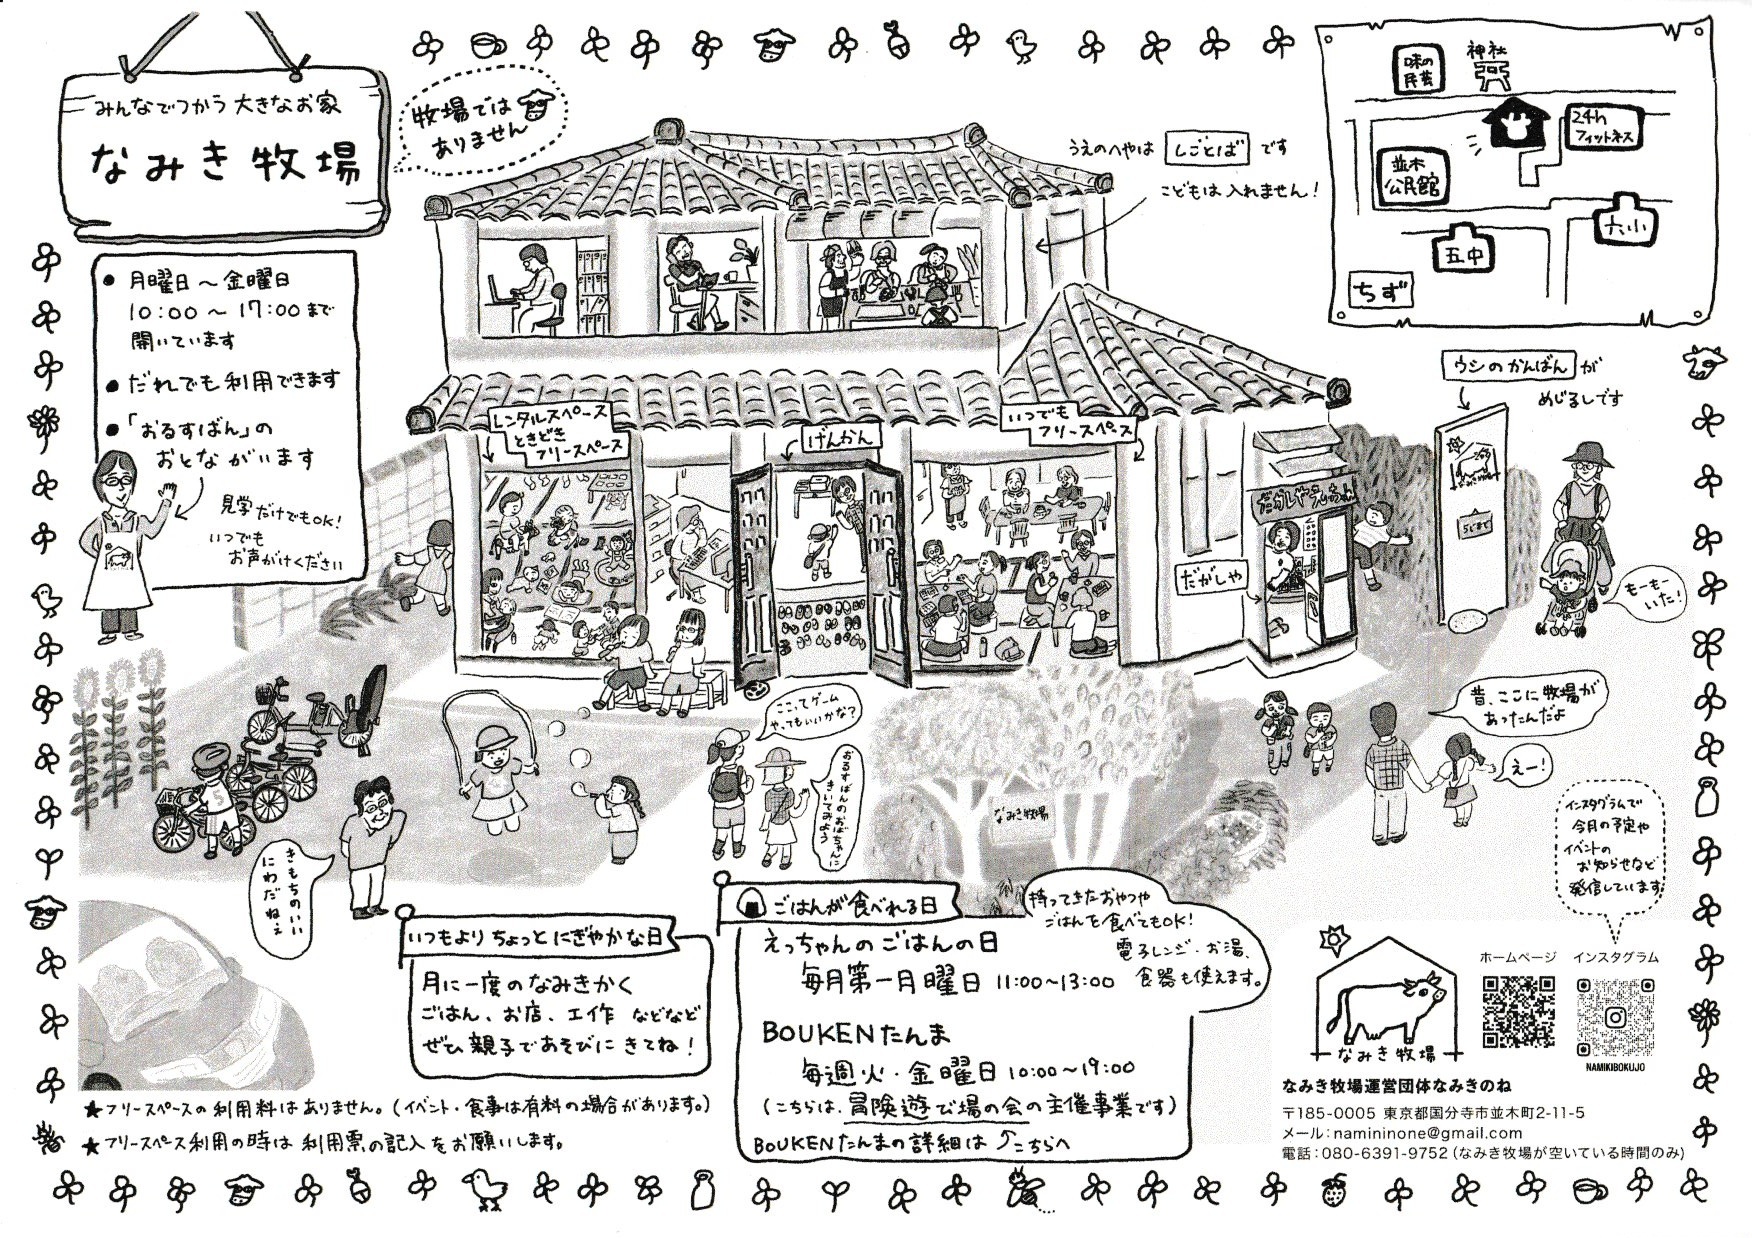 みんなでつかう大きなお家
なみき牧場
牧場では
ありません
うえのへやは しごとば です
こどもは入れません!
味の
民芸
神社
24h
フィットネス
並木
公民館
六小
五中
ちず
● 月曜日～金曜日
10:00～17:00まで
開いています
● だれでも利用できます
● 「おるすばん」の
おとながいます
見学だけでもOK!
いつでも
お声がけください
レンタルスペース
ときどき
フリースペース
げんかん
いつでも
フリースペース
ウシのかんばん が
めじるしです
だがしや
もーもー
いた!
昔、ここに牧場が
あったんだよ
えー!
ここってゲーム
やってもいいかな?
おるすばんのおばちゃんに
きいてみよう
なみき牧場
きもちのいい
にわだねぇ
インスタグラムで
今月の予定や
イベントの
お知らせなど
発信しています
いつもよりちょっとにぎやかな日
月に一度のなみきかく
ごはん、お店、工作 などなど
ぜひ親子であそびにきてね!
ごはんが食べれる日
えっちゃんのごはんの日
毎月第一月曜日 11:00～13:00
BOUKENたんま
毎週火・金曜日10:00～19:00
(こちらは、冒険遊び場の会の主催事業です)
BOUKENたんまの詳細は こちらへ
持ってきたおやつや
ごはんを食べてもOK!
電子レンジ・お湯、
食器も使えます。
★フリースペースの利用料はありません。(イベント・食事は有料の場合があります。)
★フリースペース利用の時は利用票の記入をお願いします。
なみき牧場
ホームページ インスタグラム
NAMIKIBOKUJO
なみき牧場運営団体なみきのね
〒185-0005 東京都国分寺市並木町2-11-5
メール:namininone@gmail.com
電話:080-6391-9752 (なみき牧場が空いている時間のみ)